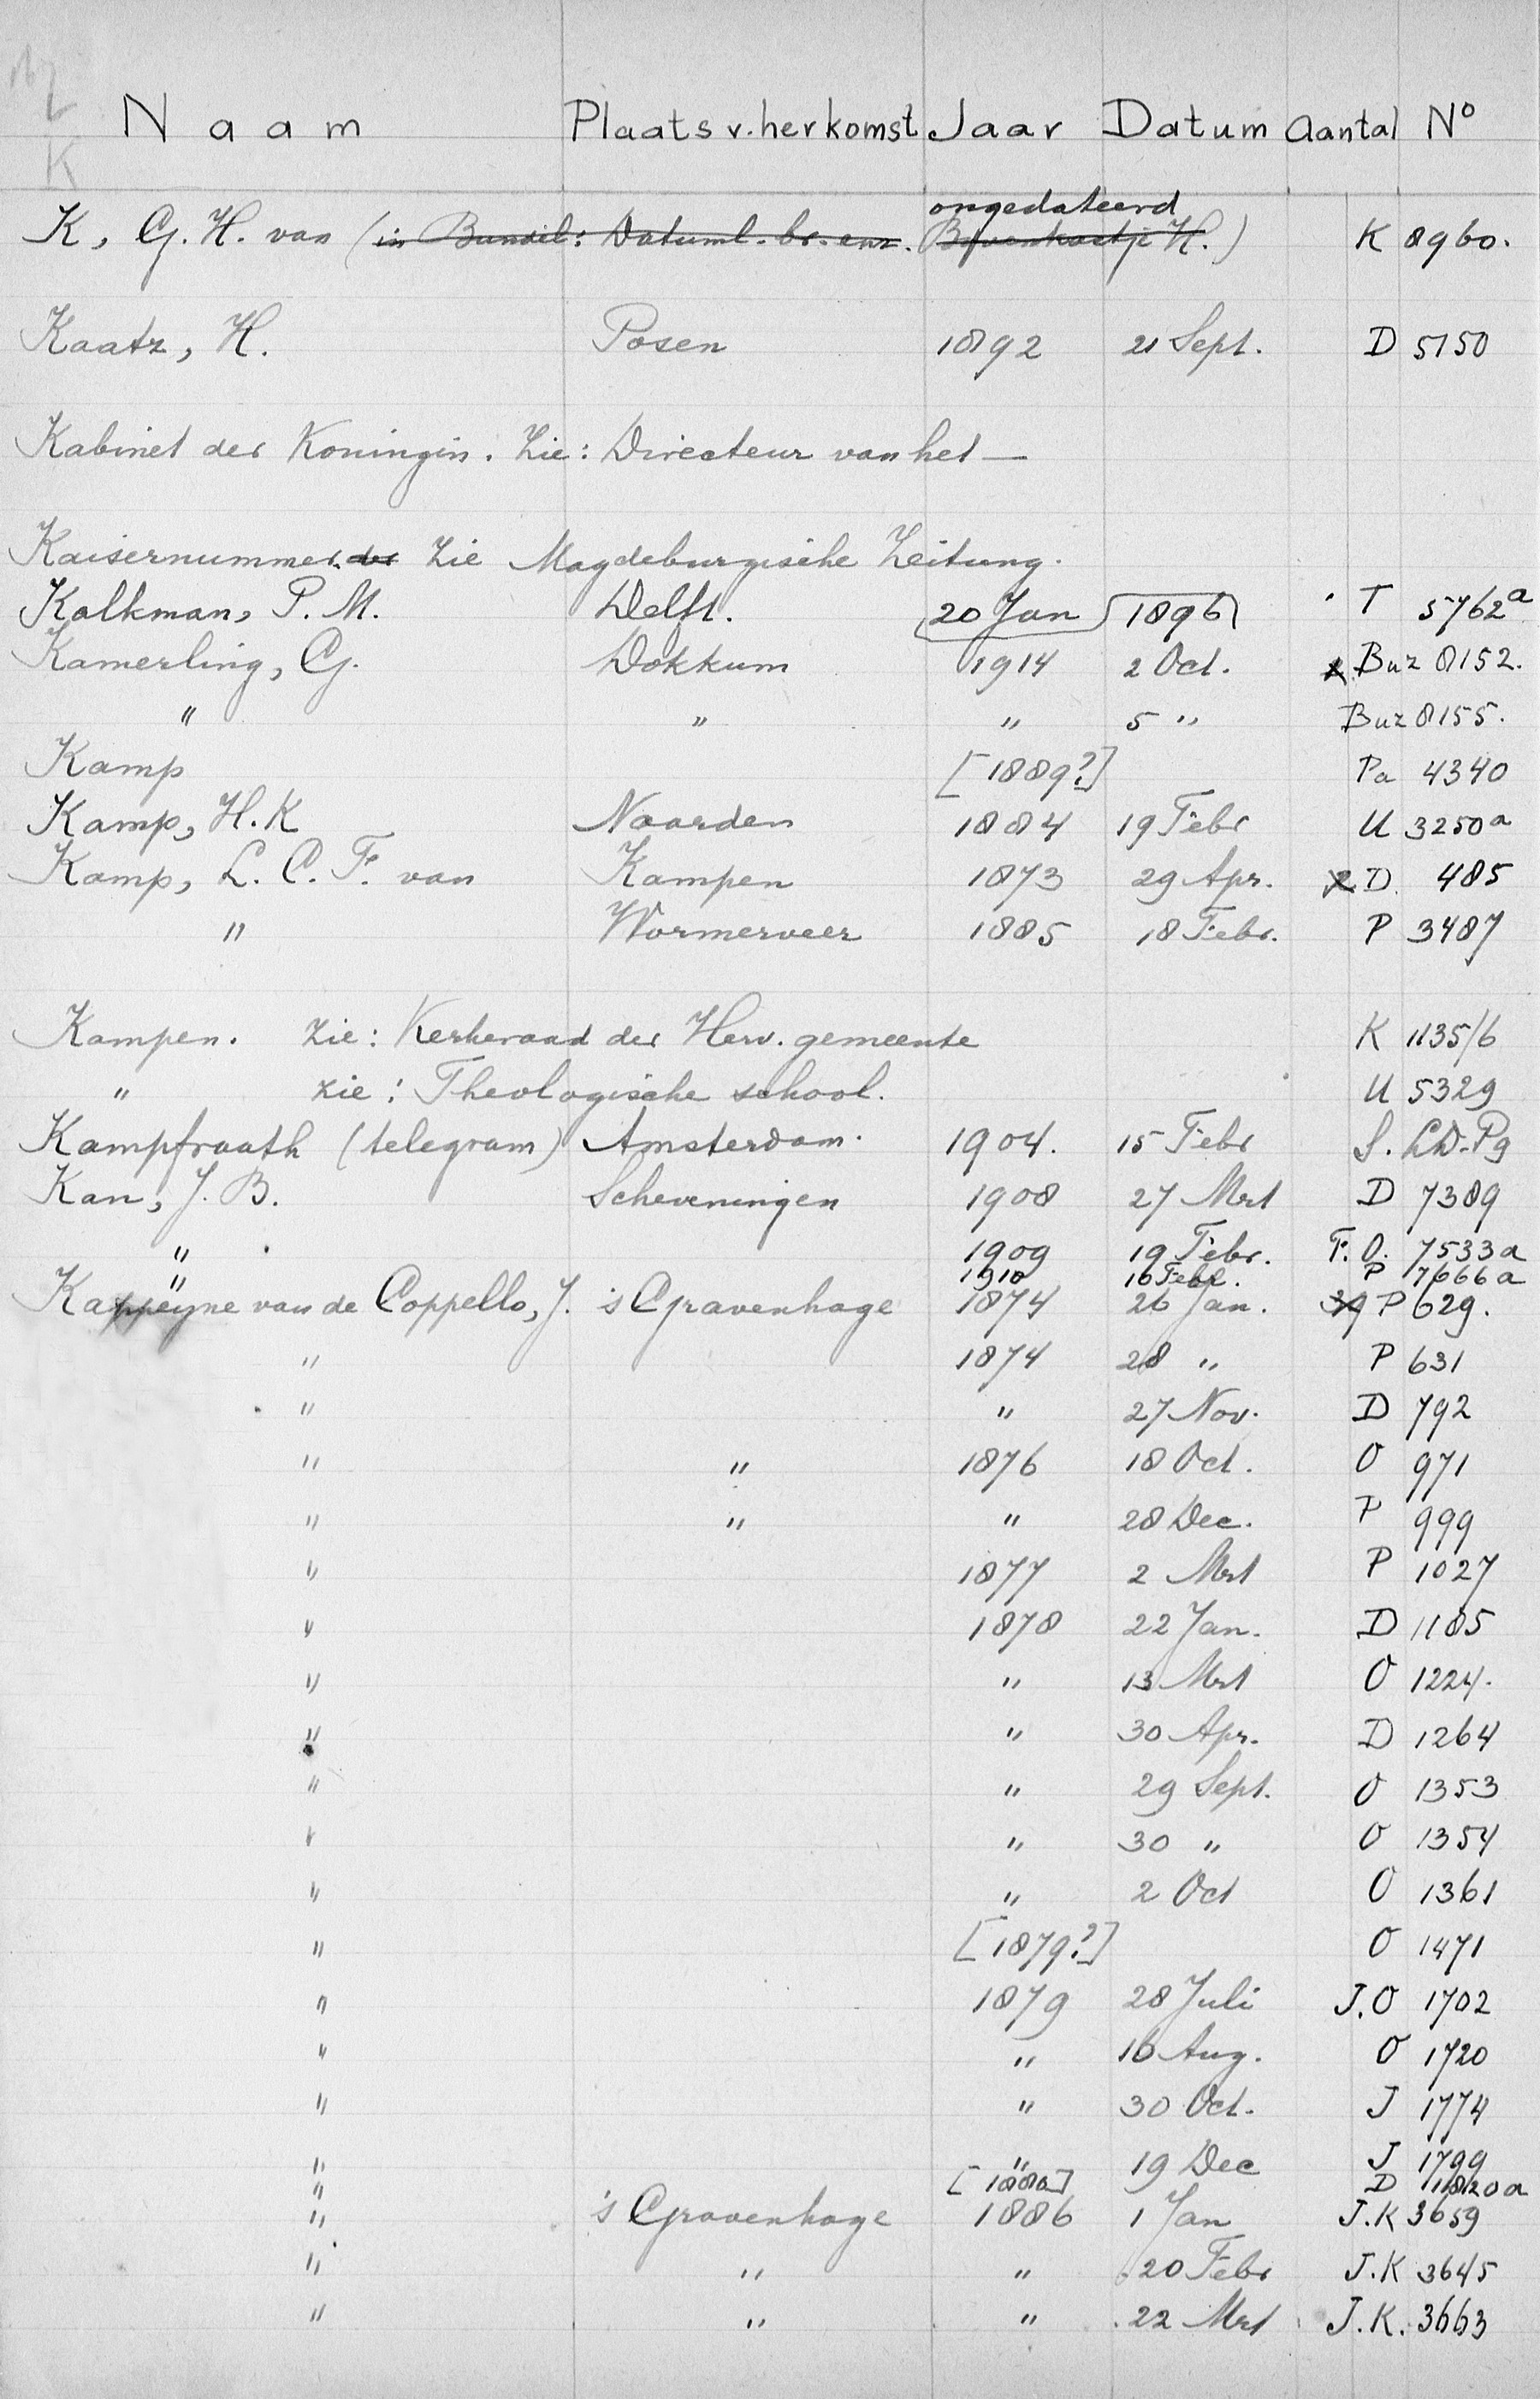 K
Naam Plaats v. herkomst Jaar Datum Aantal No
ongedateerd
K, G. H. van (in Bundel: Datuml. br. enz. Bovenkastje K.) K 8960.
Kaatz, H. Posen 1892 21 Sept. D 5150
Kabinet der Koningin. Zie: Directeur van het —
Kaisernummer der Zie Magdeburgische Zeitung.
Kalkman, P. M. Delft. 20 Jan 1896 T 5762a
Kamerling, G. Dokkum 1914 2 Oct. Buz 8152.
" " " 5 " Buz 8155.
Kamp [1889?] Pa 4340
Kamp, H. K Naarden 1884 19 Febr U 3250a
Kamp, L. C. F. van Kampen 1873 29 Apr. 2 D. 485
" Wormerveer 1885 18 Febr. P 3487
Kampen. Zie: Kerkeraad der Herv. gemeente K 1135/6
" zie: Theologische school. U 5329
Kampfraath (telegram) Amsterdam. 1904. 15 Febr S. LD-Pg
Kan, J. B. Scheveningen 1908 27 Mrt D 7389
" 1909 19 Febr. F. O. 7533a
" 1910 16 Febr. P 7666a
Kappeyne van de Coppello, J. 's Gravenhage 1874 26 Jan. 39 P 629.
" 1874 28 " P 631
" " 27 Nov. D 792
" " 1876 18 Oct. O 971
" " " 28 Dec. P 999
" 1877 2 Mrt P 1027
" 1878 22 Jan. D 1185
" " 13 Mrt O 1224.
" " 30 Apr. D 1264
" " 29 Sept. O 1353
" " 30 " O 1354
" " 2 Oct O 1361
" [1879?] O 1471
" 1879 28 Juli J.O 1702
" " 16 Aug. O 1720
" " 30 Oct. J 1774
" " 19 Dec J 1799
" [1880] D 11820a
" 's Gravenhage 1886 1 Jan J.K 3659
" " " 20 Febr J.K 3645
" " " 22 Mrt J.K. 3663